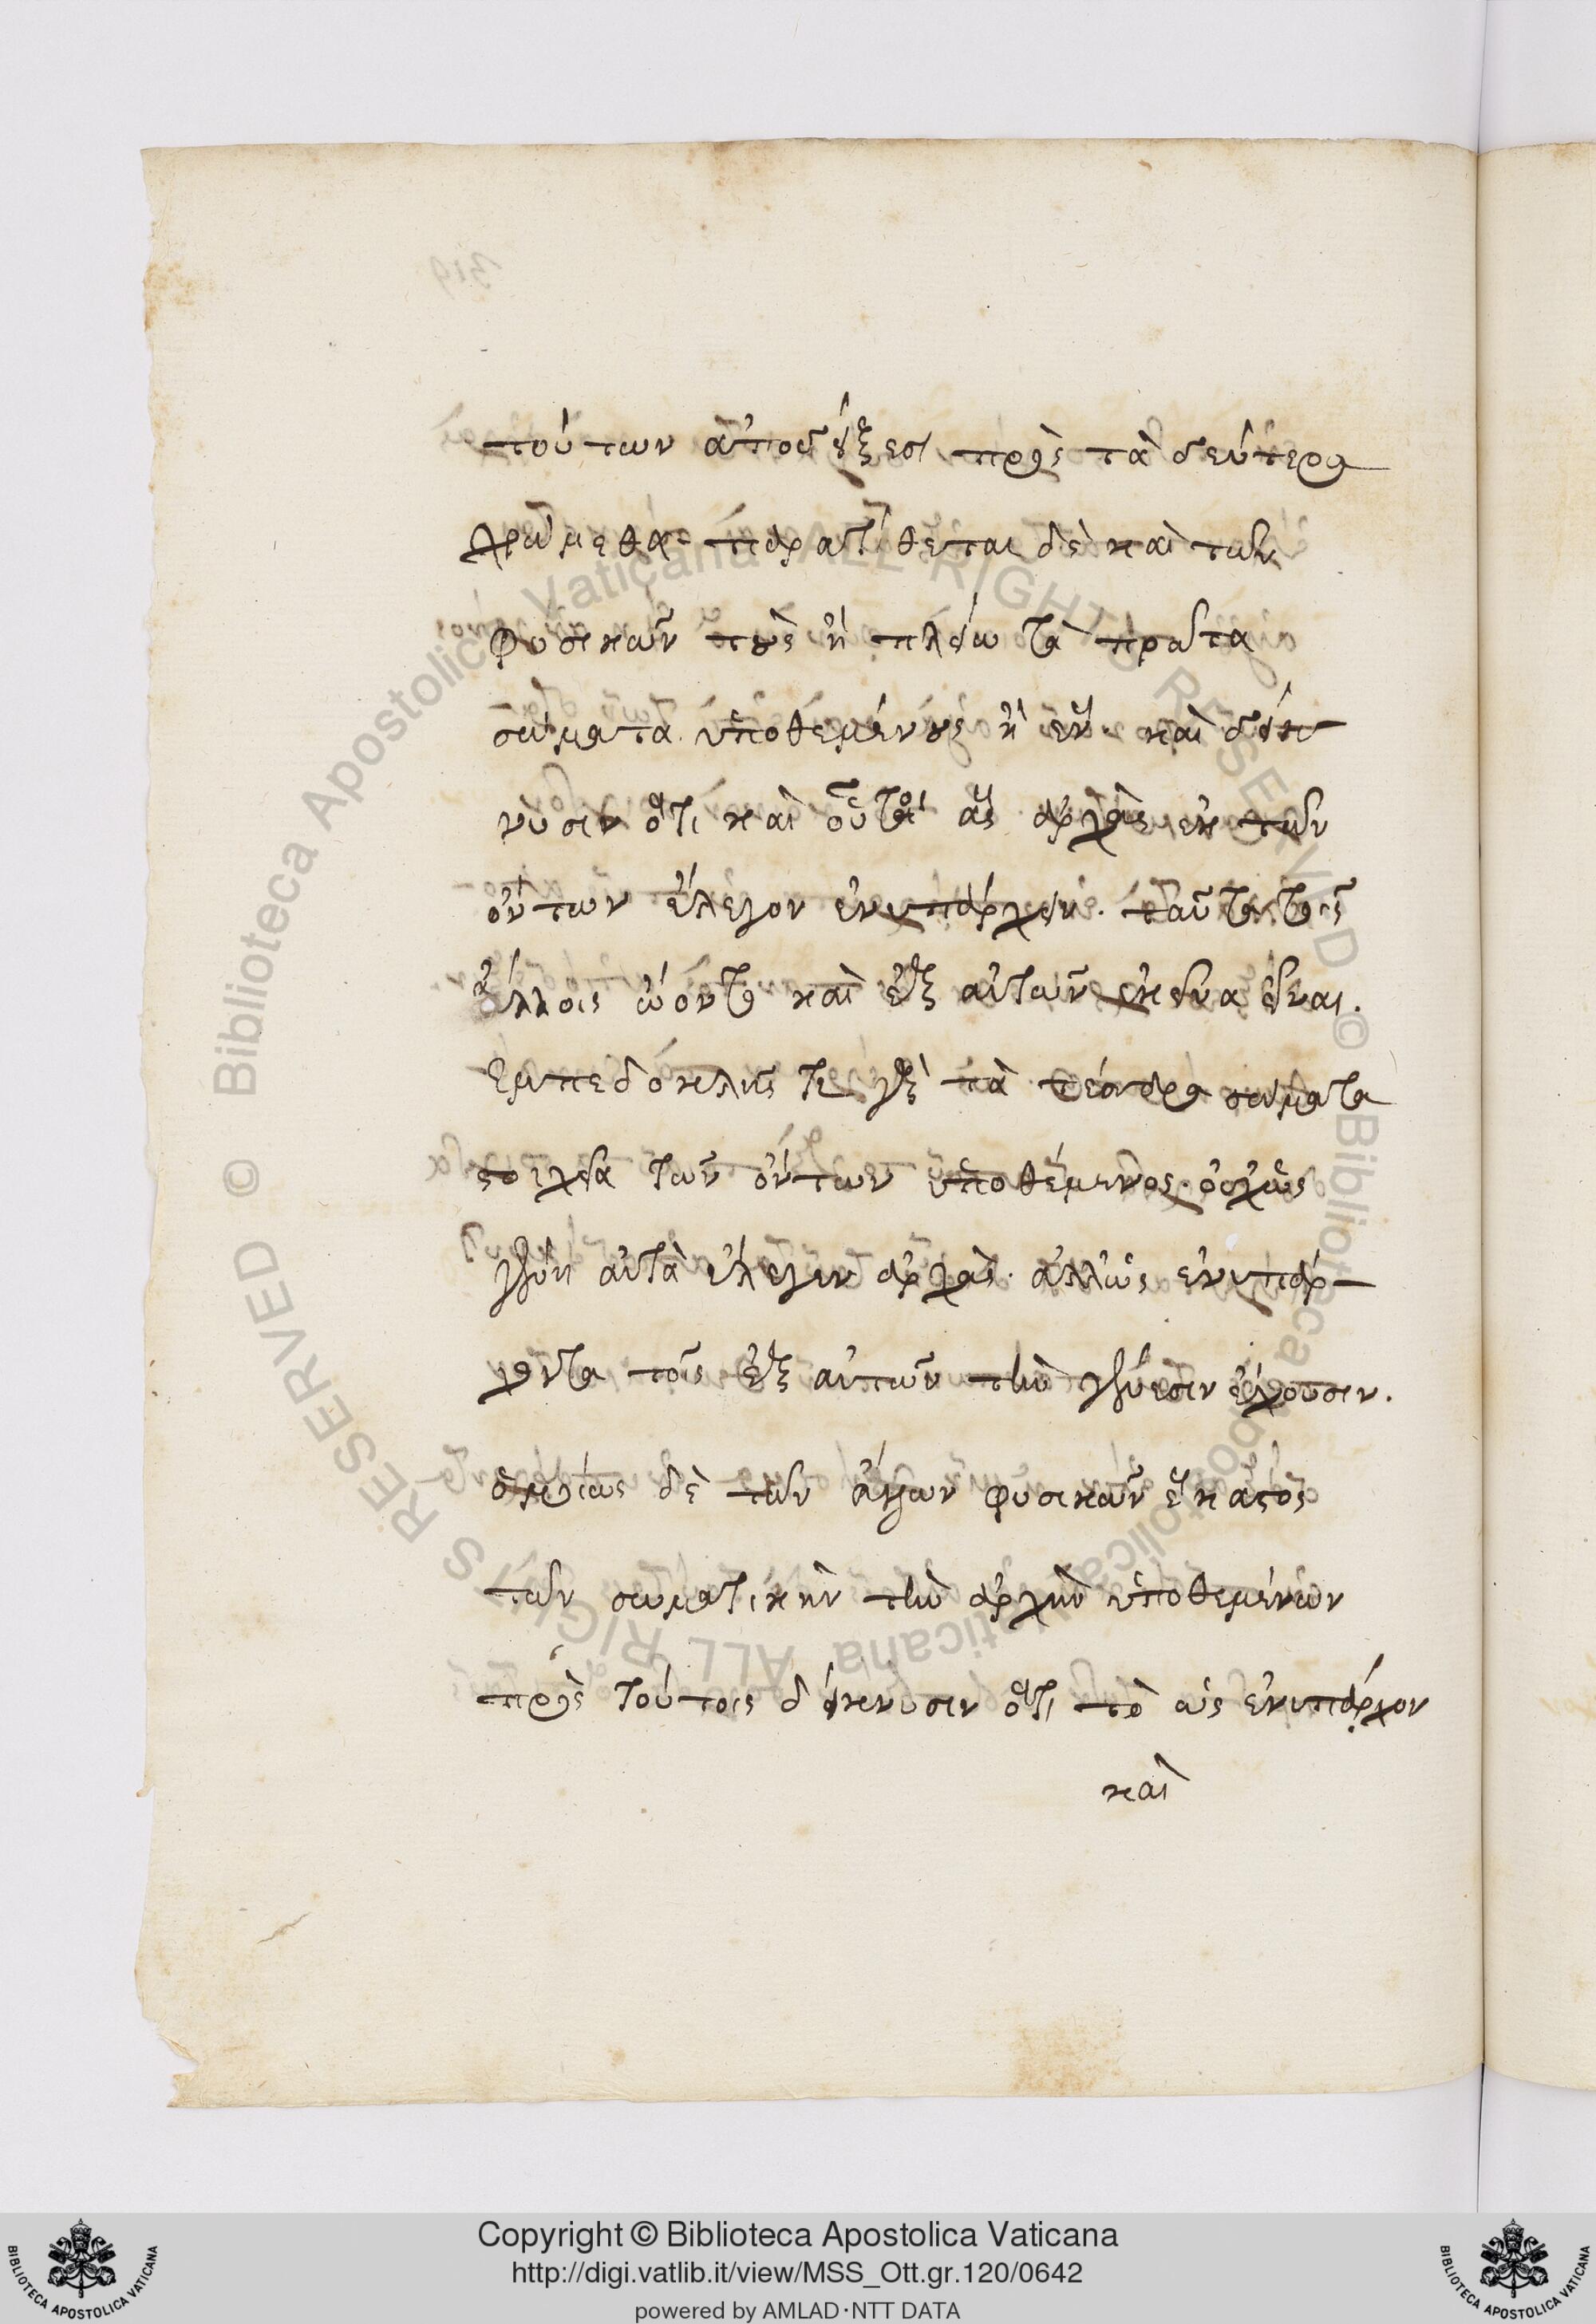 τούτων ἀποδείξεσι πρὸς τὰ δεύτερα
χρώμεθα· παρατίθεται δὲ καὶ τῶν
φυσικῶν τοὺς ἢ πλείω τὰ πρῶτα
σώματα ὑποθεμένους ἢ ἕν· καὶ δείκ
νυσιν ὅτι καὶ οὗτοι ἃς ἀρχὰς ἐκ τῶν
ὄντων ἔλεγον ἐνυπάρχειν. ταῦτα τοῖς
ἄλλοις ᾤοντο καὶ ἐξ αὐτῶν ἐκεῖνα εἶναι.
Ἐμπεδοκλῆς τε γὰρ τὰ τέσσαρα σώματα
στοιχεῖα τῶν ὄντων ὑποθέμενος· οὐχ ὡς
γένη αὐτὰ ἔλεγεν ἀρχάς· ἀλλ' ὡς ἐνυπάρ
χοντα τοῖς ἐξ αὐτῶν τὴν γένεσιν ἔχουσιν.
ὁμοίως δὲ τῶν ἄλλων φυσικῶν ἕκαστος
τῶν σωματικὴν τὴν ἀρχὴν ὑποθεμένων
πρὸς τούτοις δείκνυσιν ὅτι τὸ ὡς ἐνυπάρχον
καὶ
319
Copyright © Biblioteca Apostolica Vaticana
http://digi.vatlib.it/view/MSS_Ott.gr.120/0642
powered by AMLAD·NTT DATA
BIBLIOTECA APOSTOLICA VATICANA
BIBLIOTECA APOSTOLICA VATICANA
© Biblioteca Apostolica Vaticana ALL RIGHTS RESERVED © Biblioteca Apostolica Vaticana ALL RIGHTS RESERVED